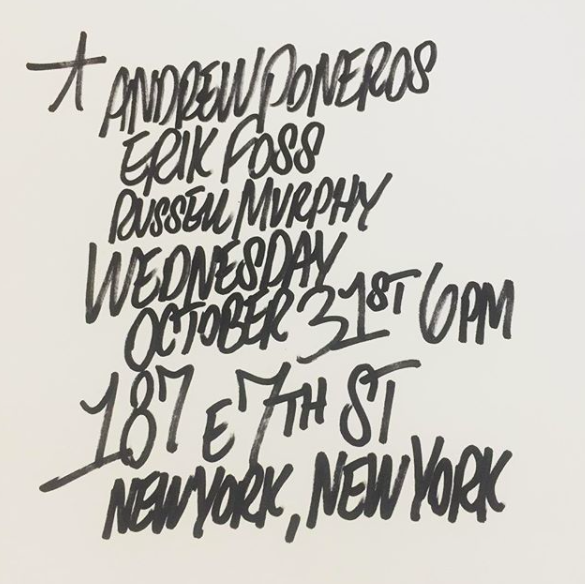 ANDREW PONEROS
ERIK FOSS
RUSSELL MURPHY
WEDNESDAY
OCTOBER 31ST 6PM
187 E 7TH ST
NEW YORK, NEW YORK